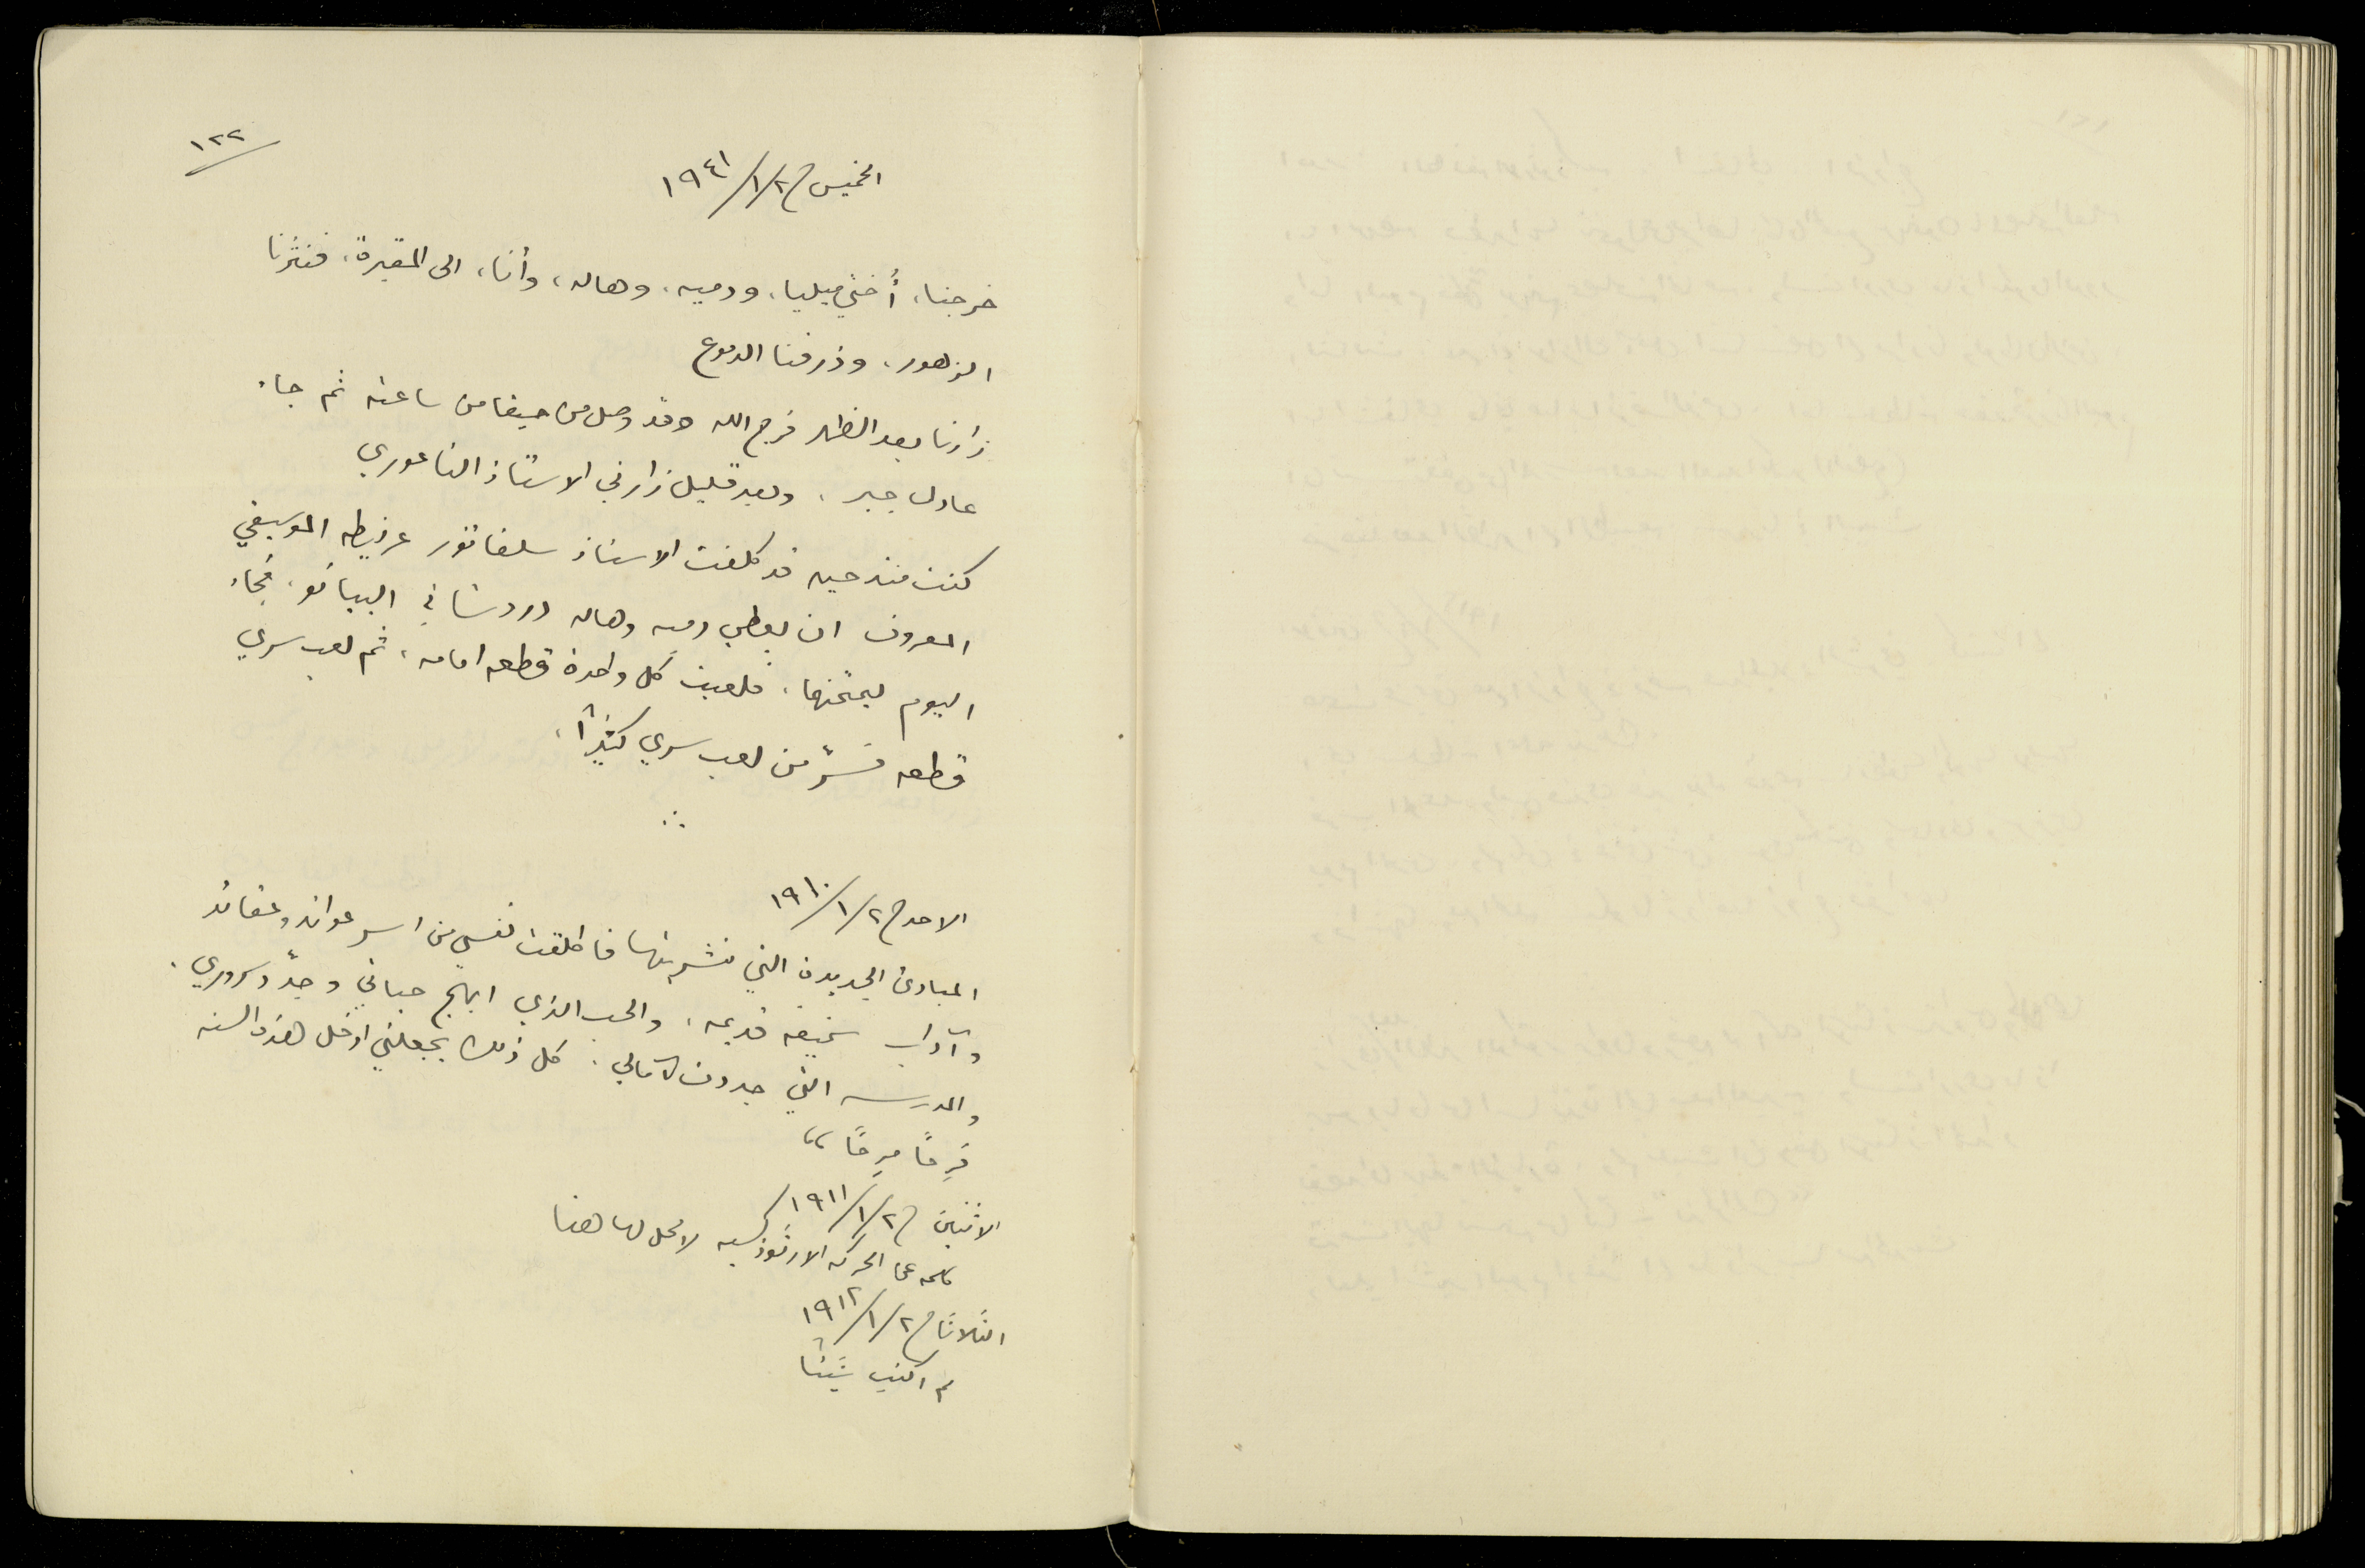 ١٢٢
الخميس في ٢/١/١٩٤١
خرجنا، أختي ميليا، ودميه، وهاله، وأنا، الى المقبرة، فنثرنا
الزهور، وذرفنا الدموع
زارنا بعد الظهر فرج الله وقد وصل من حيفا من ساعته ثم جاء
عادل جبر، وبعد قليل زارني الاستاذ الناعوري
كنت منذ حين قد كلفت الاستاذ سلفاتور عرنيطه الموسيقي
المعروف ان يعطي دميه وهاله دروسًا في البيانو، فجاء
اليوم ليمتحنهما، فلعبت كل واحدة قطعه امامه، ثم لعب سري
قطعه فسرّ من لعب سري كثيرًا،
الاحد في ٢/١/١٩١٠
المبادئ الجديدة التي نشربتها فاطلقت نفسي من اسر عوائد وعقائد
وآداب سخيفه قديمه، والحب الذي ابهج حياتي وجدّد سروري.
والمدرسه التي جددت آمالي. كل ذلك يجعلني ادخل هذه السنه
فرِحًا مرِحًا،،
الاثنين في ٢/١/١٩١١
كلمه عن الحركه الارثوذكسيه لا محل لها هنا
الثلاثا في ٢/١/١٩١٢
لم اكتب شيئًا